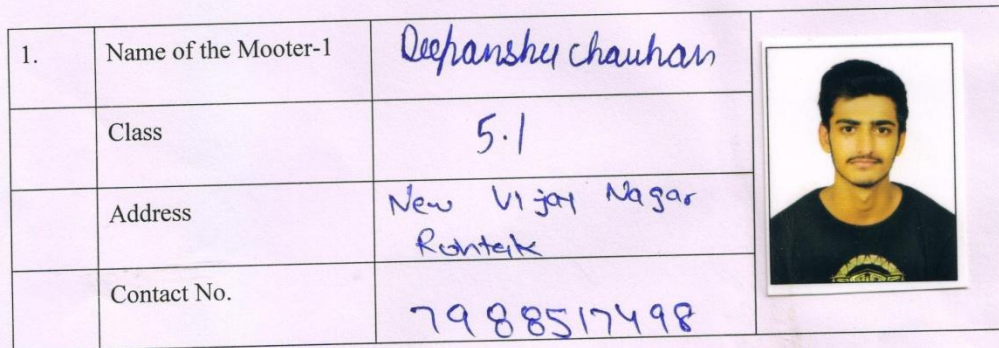 1. Name of the Mooter-1 Deepanshu Chauhan
Class 5.1
Address New Vijay Nagar
Rohtak
Contact No. 7988517498